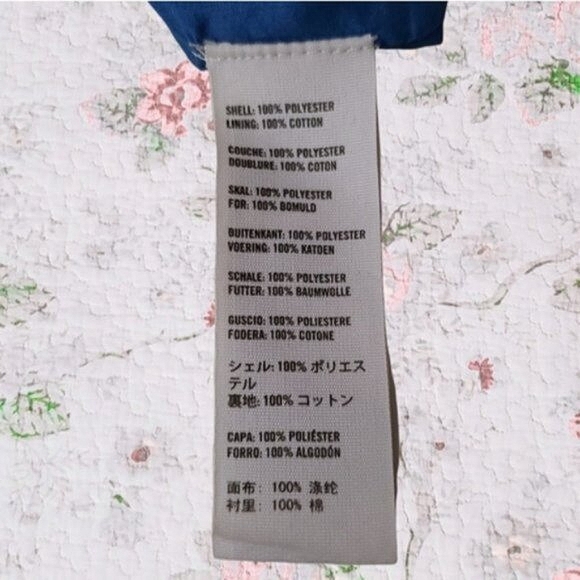 SHELL: 100% POLYESTER
LINING: 100% COTTON
COUCHE: 100% POLYESTER
DOUBLURE: 100% COTON
SKAL: 100% POLYESTER
FOR: 100% BOMULD
BUITENKANT: 100% POLYESTER
VOERING: 100% KATOEN
SCHALE: 100% POLYESTER
FUTTER: 100% BAUMWOLLE
GUSCIO: 100% POLIESTERE
FODERA: 100% COTONE
シェル: 100% ポリエス
テル
裏地: 100% コットン
CAPA: 100% POLIÉSTER
FORRO: 100% ALGODÓN
面布: 100% 涤纶
衬里: 100% 棉